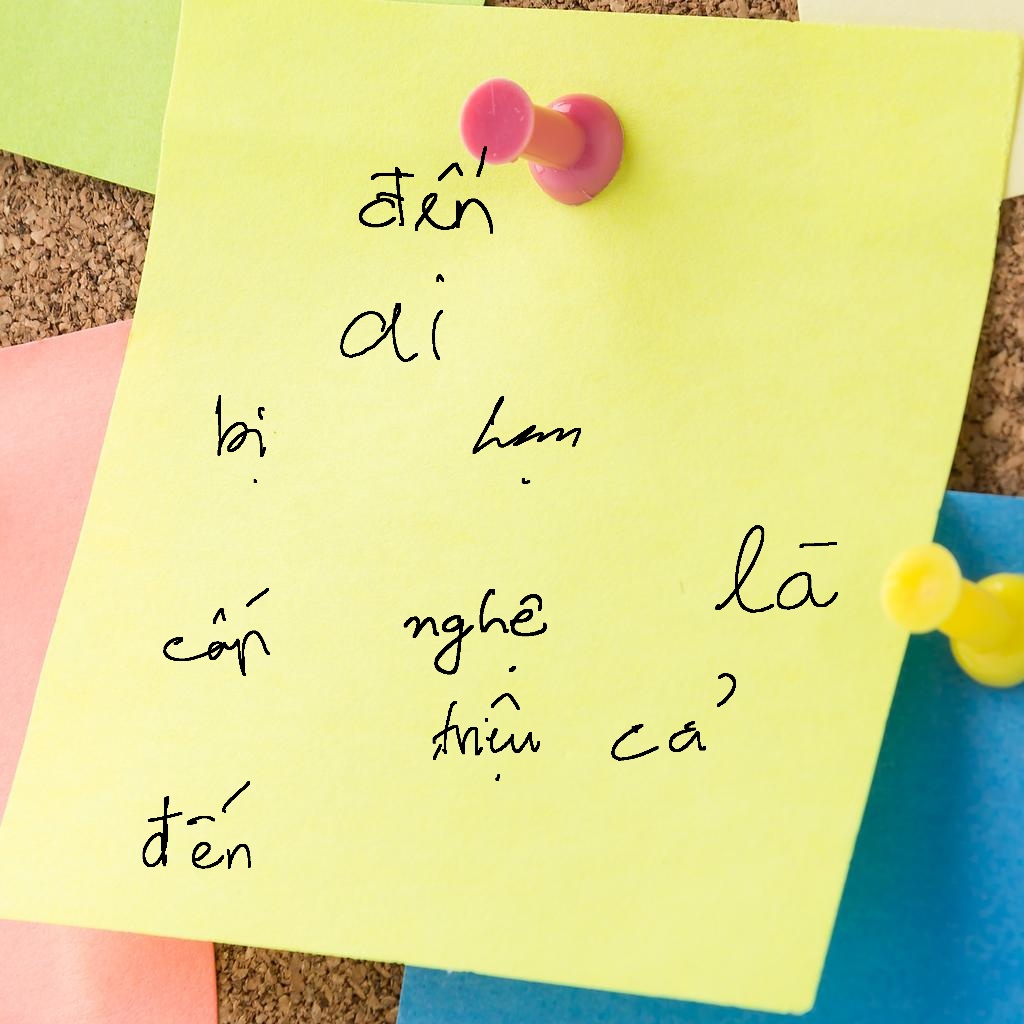 đến
di
bị hạn
là
cấp nghệ
triệu cả
đến